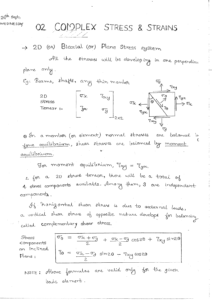 02 COMPLEX STRESS & STRAINS
→ 2D (or) Biaxial (or) Plane Stress system
As the stresses will be developing in two perpendicular
plane only
Eg: Frames, shafts, any thin member
2D
stress
Tensor =
In a member (or element) normal stresses are balanced in
force equilibrium, shear stresses are balanced by moment
equilibrium.
For moment equilibrium, τxy = τyx
∴ for a 2D stress tensor, there will be a total of
4 stress components available. Among them, 3 are independent
components.
If horizontal shear stress is due to external loads,
a vertical shear stress of opposite nature develops for balancing
called complementary shear stress.
Stress
components
on inclined
Plane.
σθ = σx + σy / 2 + σx - σy / 2 cos2θ + τxy sin2θ
τθ = σx - σy / 2 sin2θ - τxy cos2θ
NOTE: Above formulae are valid only for the given
basic element.